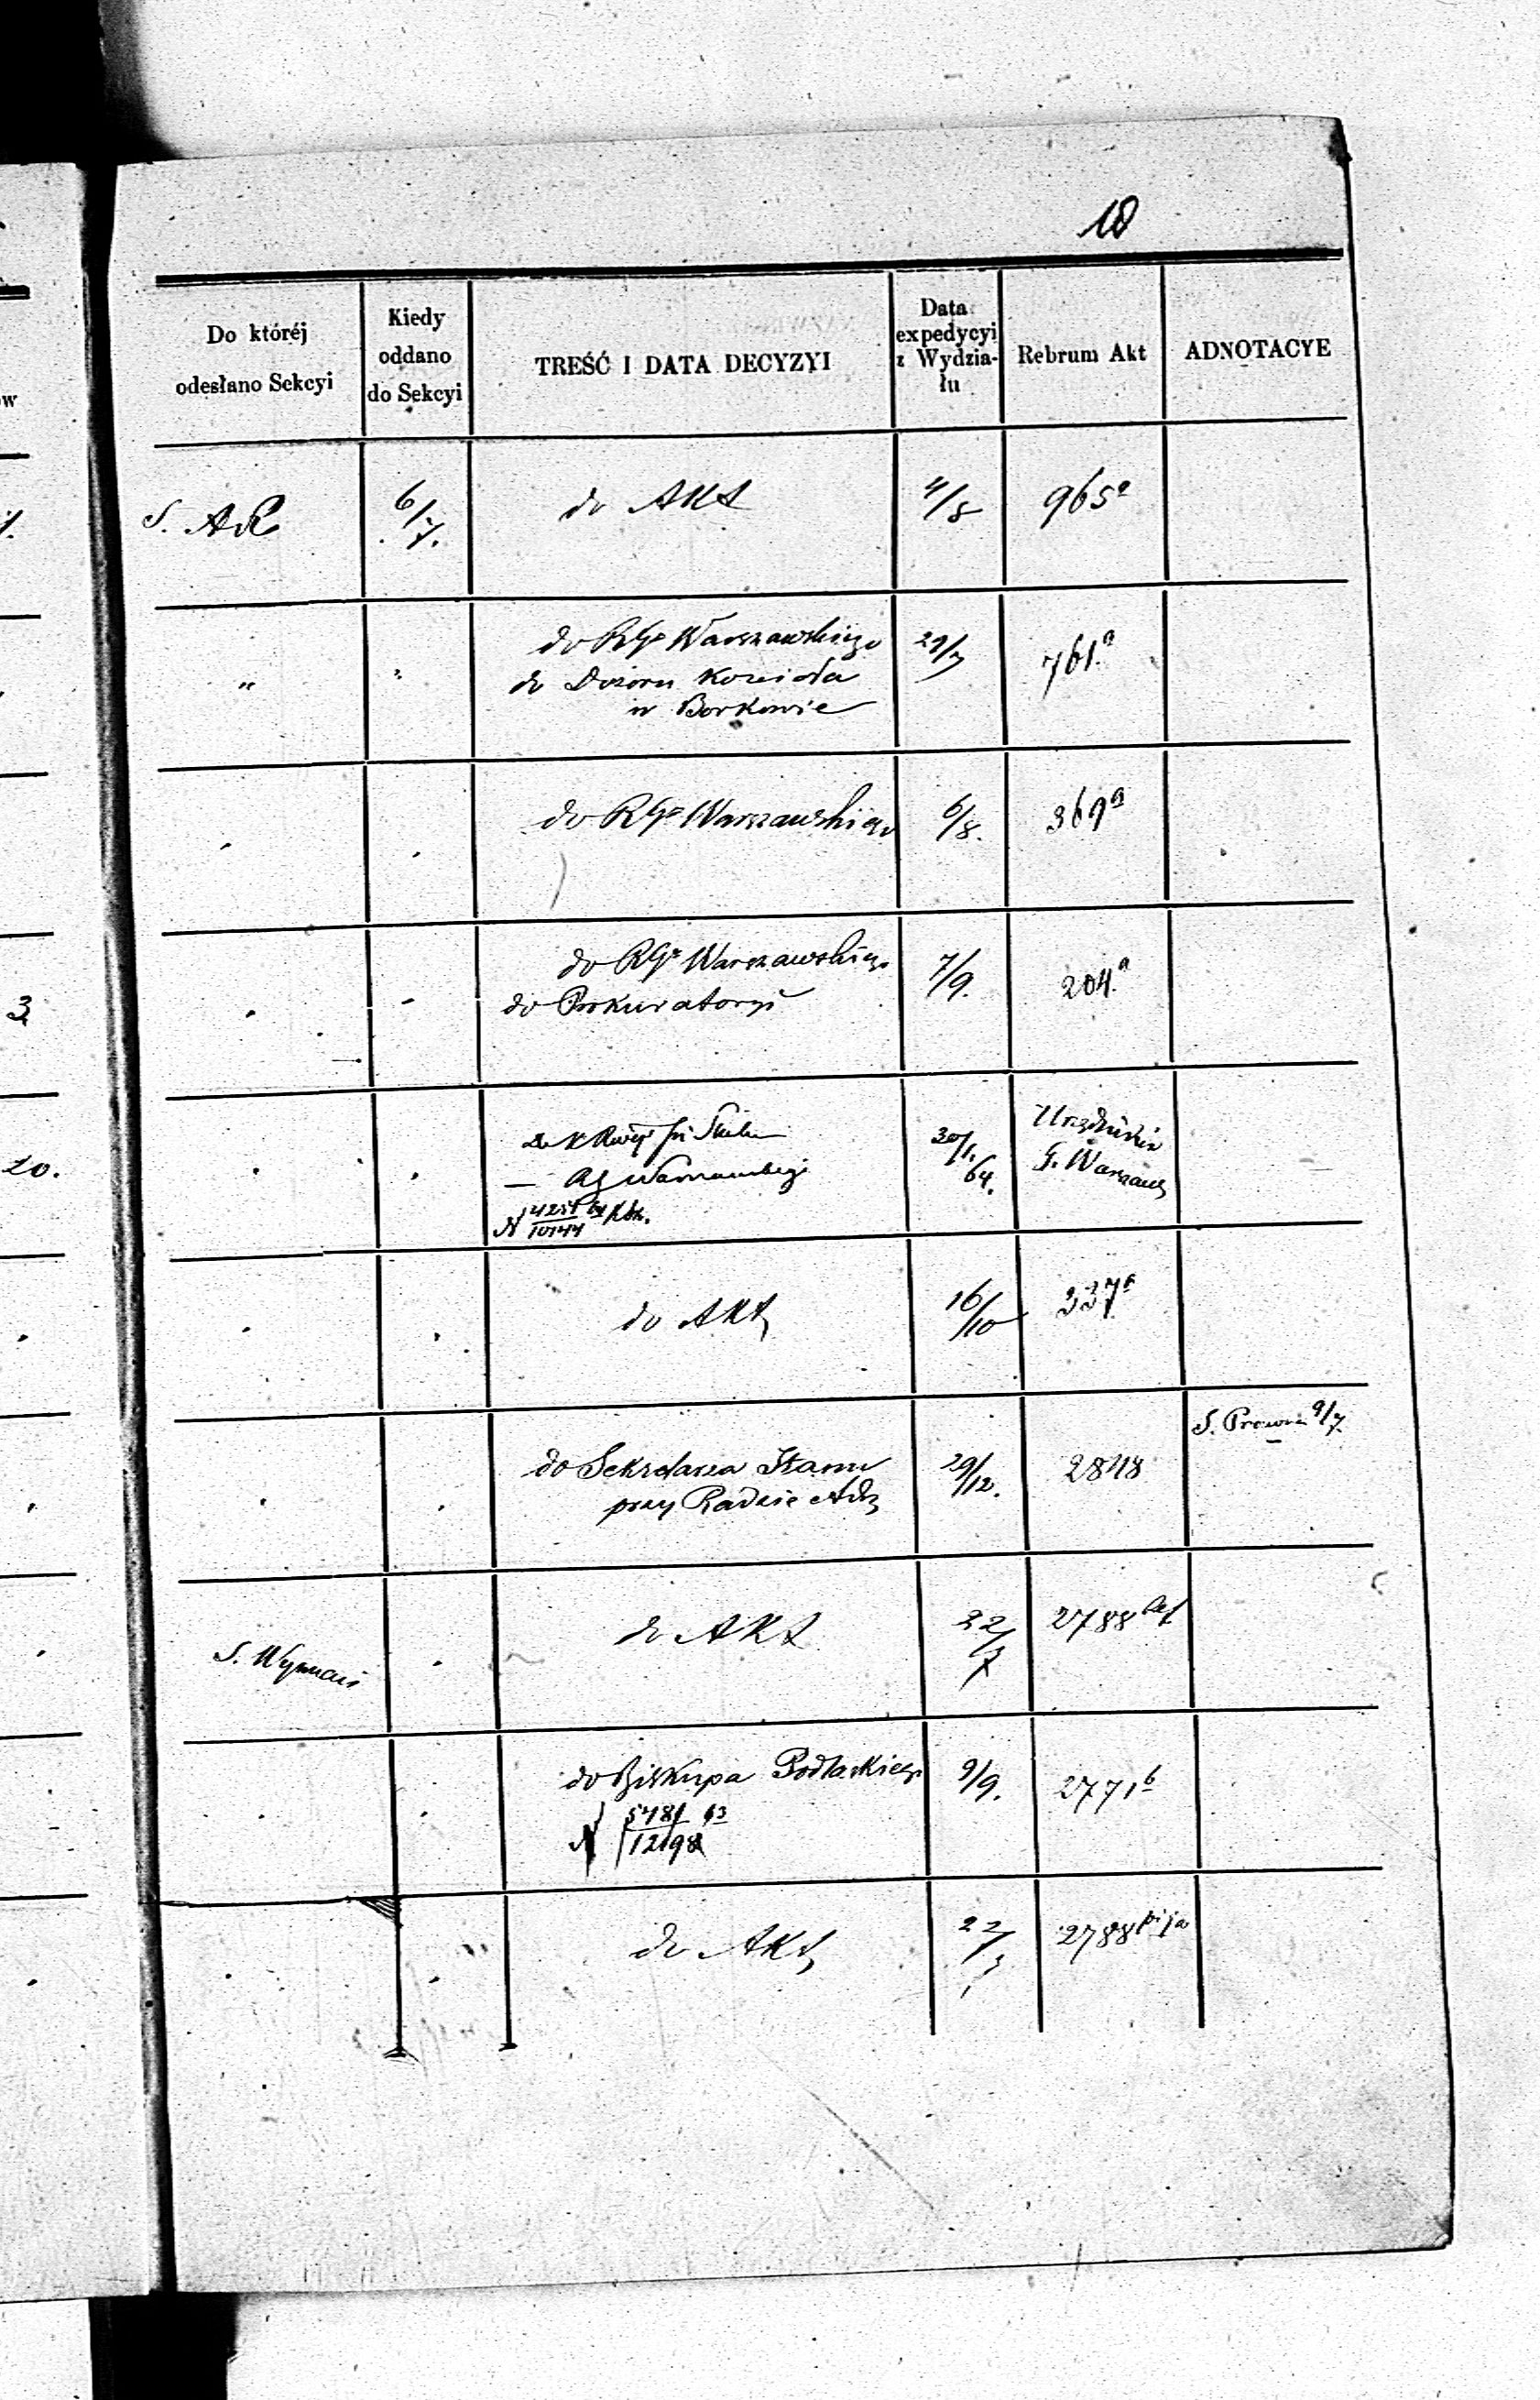 10
Do któréj
odesłano Sekcyi
Kiedy
oddano
do Sekcyi
TREŚĆ I DATA DECYZYI
Data
expedycyi
z Wydzia-
łu
Rebrum Akt
ADNOTACYE
w
S. AR
6/7.
do Akt
4/8
965a
"
"
do RGo Warszawskiego
do Dozoru Kościoła
w Borkowie
29/7
761.a
do RGo Warszawskiego
6/8.
369a
3
do RGo Warszawskiego
do Prokuratoryi
7/9.
204.a
20.
30/1.
64.
G. Warszaws
do Akt
16/10
337a
do Sekretarza Stanu
przy Radzie Adm
29/12.
2848
S. Prawna 9/7.
S. Wyznań
do Akt
22/7
2788
do Biskupa Podlaskiego
N 5481 63
12198
9/9.
2771b
do Akt
22/7
2788